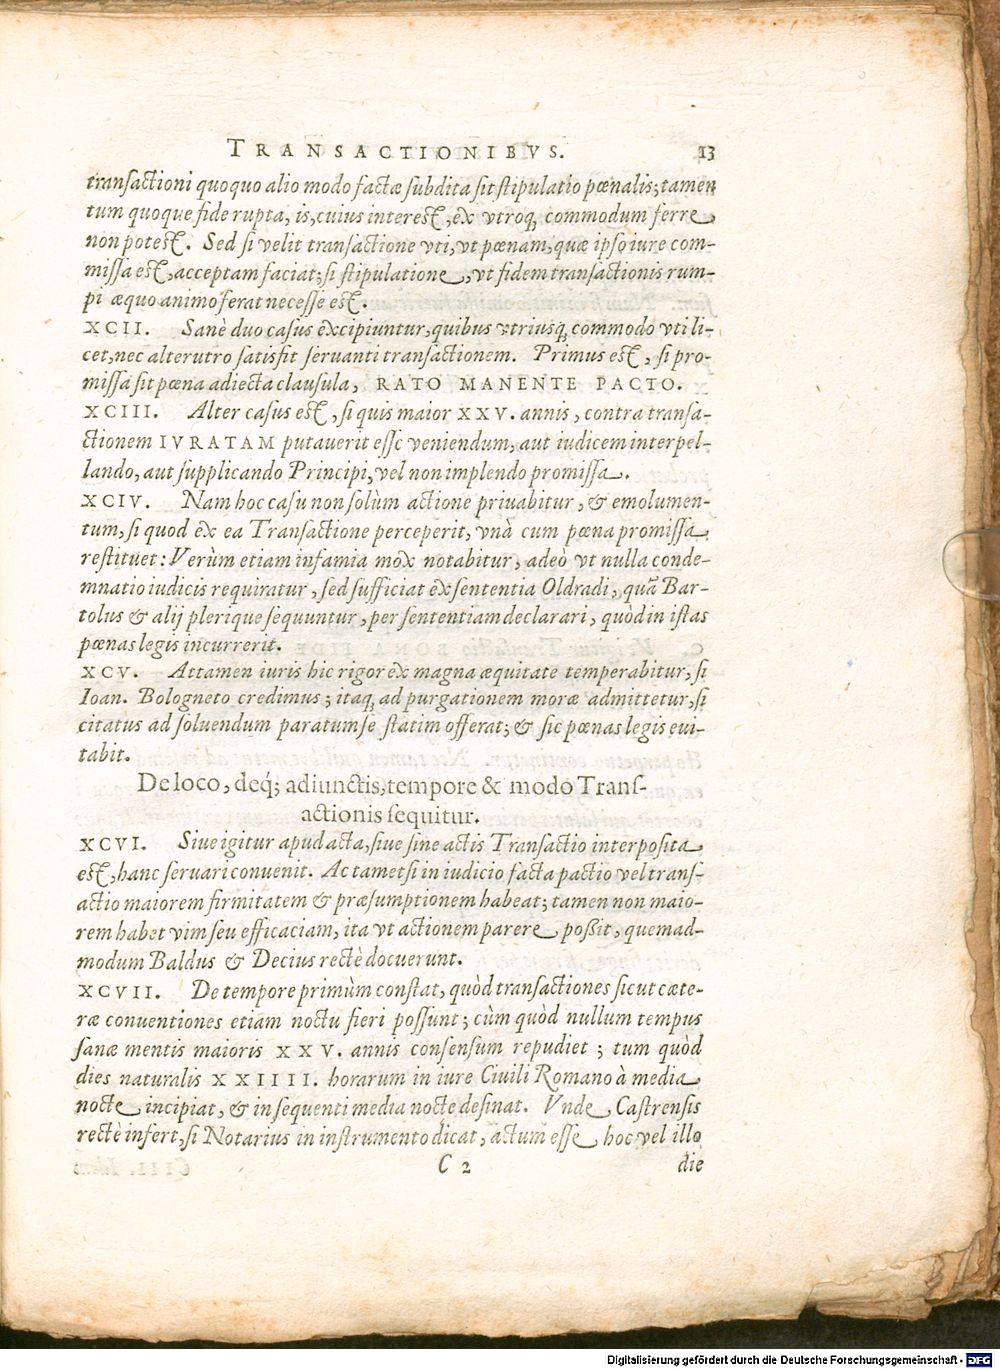 TRANSACTIONIBVS. 13
transactioni quoquo alio modo factæ subdita sit stipulatio pœnalis; tamen
tum quoque fide rupta, is, cuius interest, ex vtroq; commodum ferre
non potest. Sed si velit transactione vti, vt pœnam, quæ ipso iure com-
missa est, acceptam faciat; si stipulatione, vt fidem transactionis rum-
pi æquo animo ferat necesse est.
XCII. Sanè duo casus excipiuntur, quibus vtriusq; commodo vti li-
cet, nec alterutro satisfit servanti transactionem. Primus est, si pro-
missa sit pœna adiecta clausula, RATO MANENTE PACTO.
XCIII. Alter casus est, si quis maior XXV. annis, contra transa-
ctionem IVRATAM putauerit esse veniendum, aut iudicem interpel-
lando, aut supplicando Principi, vel non implendo promissa.
XCIV. Nam hoc casu non solùm actione priuabitur, & emolumen-
tum, si quod ex ea Transactione perceperit, vnà cum pœna promissa
restituet: Verùm etiam infamia mox notabitur, adeò vt nulla conde-
mnatio iudicis requiratur, sed sufficiat ex sententia Oldradi, quã Bar-
tolus & alij plerique sequuntur, per sententiam declarari, quòd in istas
pœnas legis incurrerit.
XCV. Attamen iuris hic rigor ex magna æquitate temperabitur, si
Ioan. Bologneto credimus; itaq; ad purgationem moræ admittetur, si
citatus ad soluendum paratum se statim offerat; & sic pœnas legis eui-
tabit.
De loco, deq́; adiunctis, tempore & modo Trans-
actionis sequitur.
XCVI. Siue igitur apud acta, siue sine actis Transactio interposita
est, hanc servari convenit. Ac tametsi in iudicio facta pactio vel trans-
actio maiorem firmitatem & præsumptionem habeat; tamen non maio-
rem habet vim seu efficaciam, ita vt actionem parere possit, quemad-
modum Baldus & Decius rectè docuerunt.
XCVII. De tempore primùm constat, quòd transactiones sicut cæte-
ræ conventiones etiam noctu fieri possunt; cùm quòd nullum tempus
sanæ mentis maioris XXV. annis consensum repudiet; tum quòd
dies naturalis XXIIII. horarum in iure Civili Romano à media
nocte incipiat, & in sequenti media nocte desinat. Vnde Castrensis
rectè infert, si Notarius in instrumento dicat, actum esse hoc vel illo
C 2 die
Digitalisierung gefördert durch die Deutsche Forschungsgemeinschaft - DFG